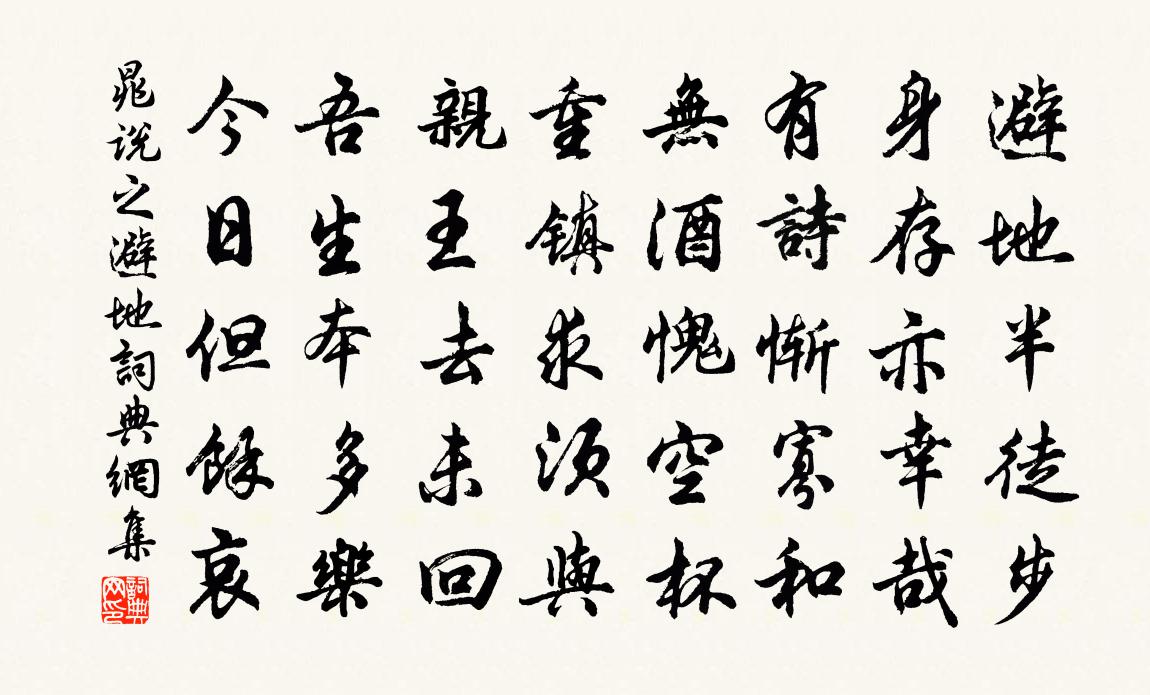 避地半徒步
身存亦幸哉
有詩慚寡和
無酒愧空杯
重鎮求須與
親王去未回
吾生本多樂
今日但餘哀
晁说之避地詞典網集
詞典网印